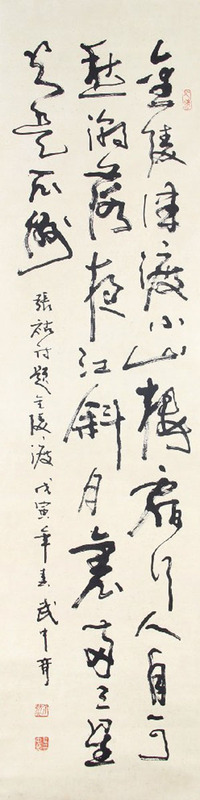 金陵津渡小山樓一宿行人自可
愁潮落夜江斜月裏兩三星
火是瓜洲
張祜詩題金陵渡 戊寅年春武中奇